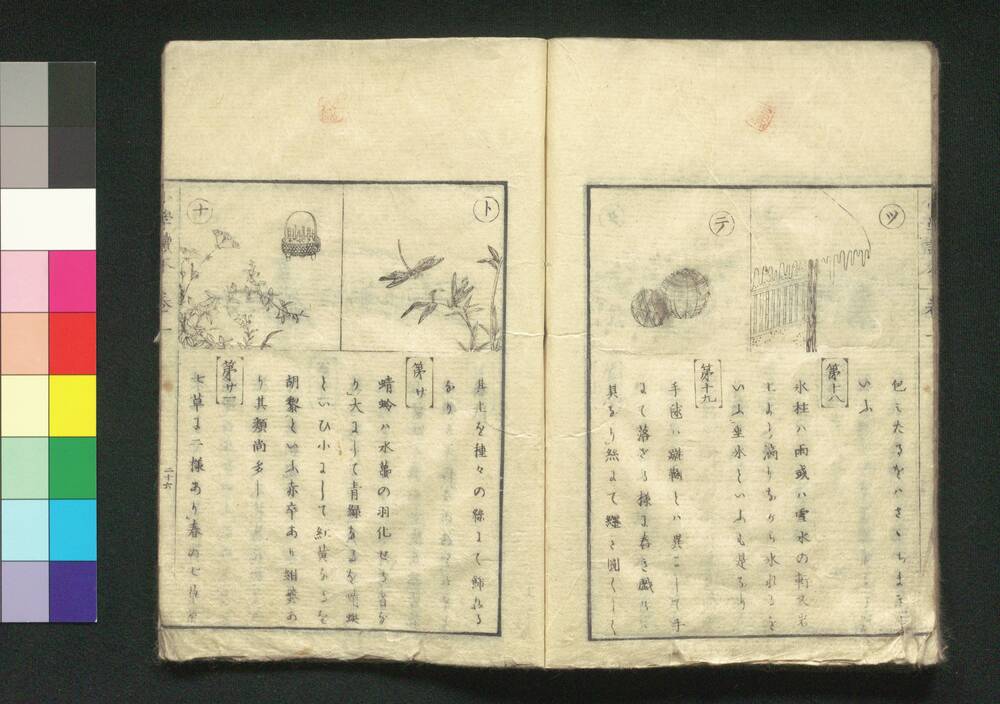 ツ
テ
いふ
第十八
氷柱ハ雨或ハ雪水の軒又岩
より滴りながら氷れるを
いふ垂氷といふも是なり
第十九
手毬ハ蹴鞠とハ異にして手
にて落ざる様に舂き戯れ
具なり絲にて纒き圓くし
ト
ナ
其上を種々の絲にて飾れる
なり
第廿
蜻蛉ハ水蠆の羽化せる者な
り大にして青緑なるを蜻蜓
といひ小にして紅黄なるを
胡黎といふ赤卒あり紺蠜あ
り其類尚多し
第廿一
七草に二様あり春の七
二十六